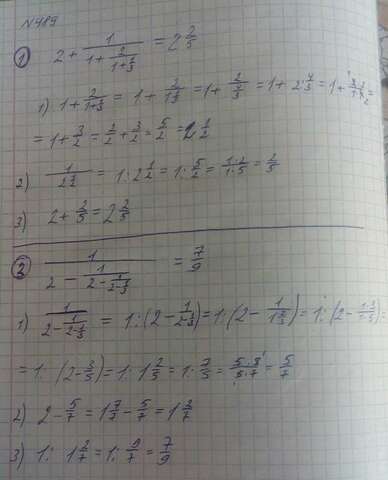 N489
① 2 + 1/(1 + 2/(1 + 1/3)) = 2 2/5
1) 1 + 2/(1 + 1/3) = 1 + 2/(1 1/3) = 1 + 2/(4/3) = 1 +
= 1 + 3/2 = 2/2 + 3/2 = 5/2 = 2 1/2
2) 1/(2 1/2) = 1 : 2 1/2 = 1 : 5/2 = (1·2)/(1·5) = 2/5
3) 2 + 2/5 = 2 2/5
② 1/(2 - 1/(2 - 1/(2 - 1/3))) = 7/9
1) 1/(2 - 1/(2 - 1/3)) = 1 : (2 - 1/(2 - 1/3)) = 1 : (2 - 1/(1 2/3)) = 1 : (2 - (1·3)/(1·5)) =
= 1 : (2 - 3/5) = 1 : 1 2/5 = 1 : 7/5 = = 5/7
2) 2 - 5/7 = 1 7/7 - 5/7 = 1 2/7
3) 1 : 1 2/7 = 1 : 9/7 = 7/9